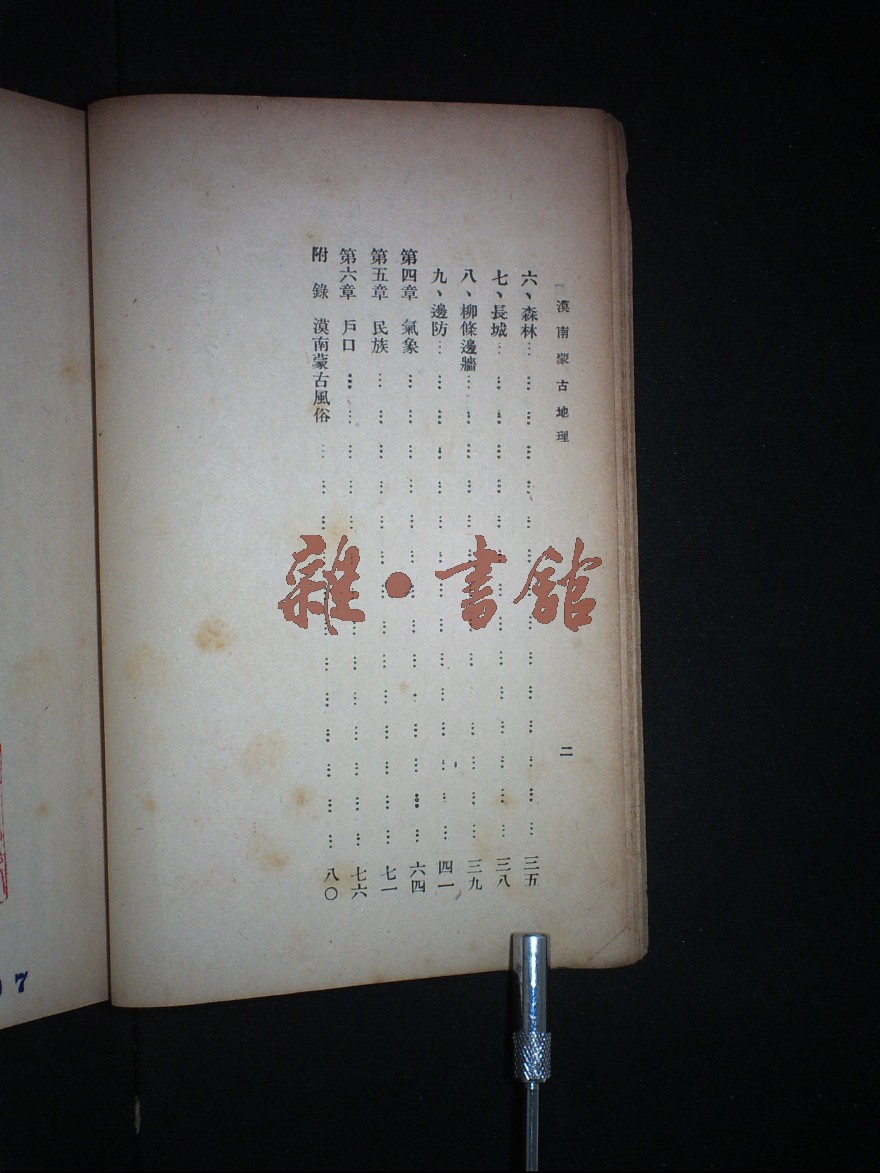 漠南蒙古地理
二
六、森林……三五
七、長城……三八
八、柳條邊牆……三九
九、邊防……四一
第四章 氣象……六四
第五章 民族……七一
第六章 戶口……七六
附錄 漠南蒙古風俗……八〇
雜·書館
7